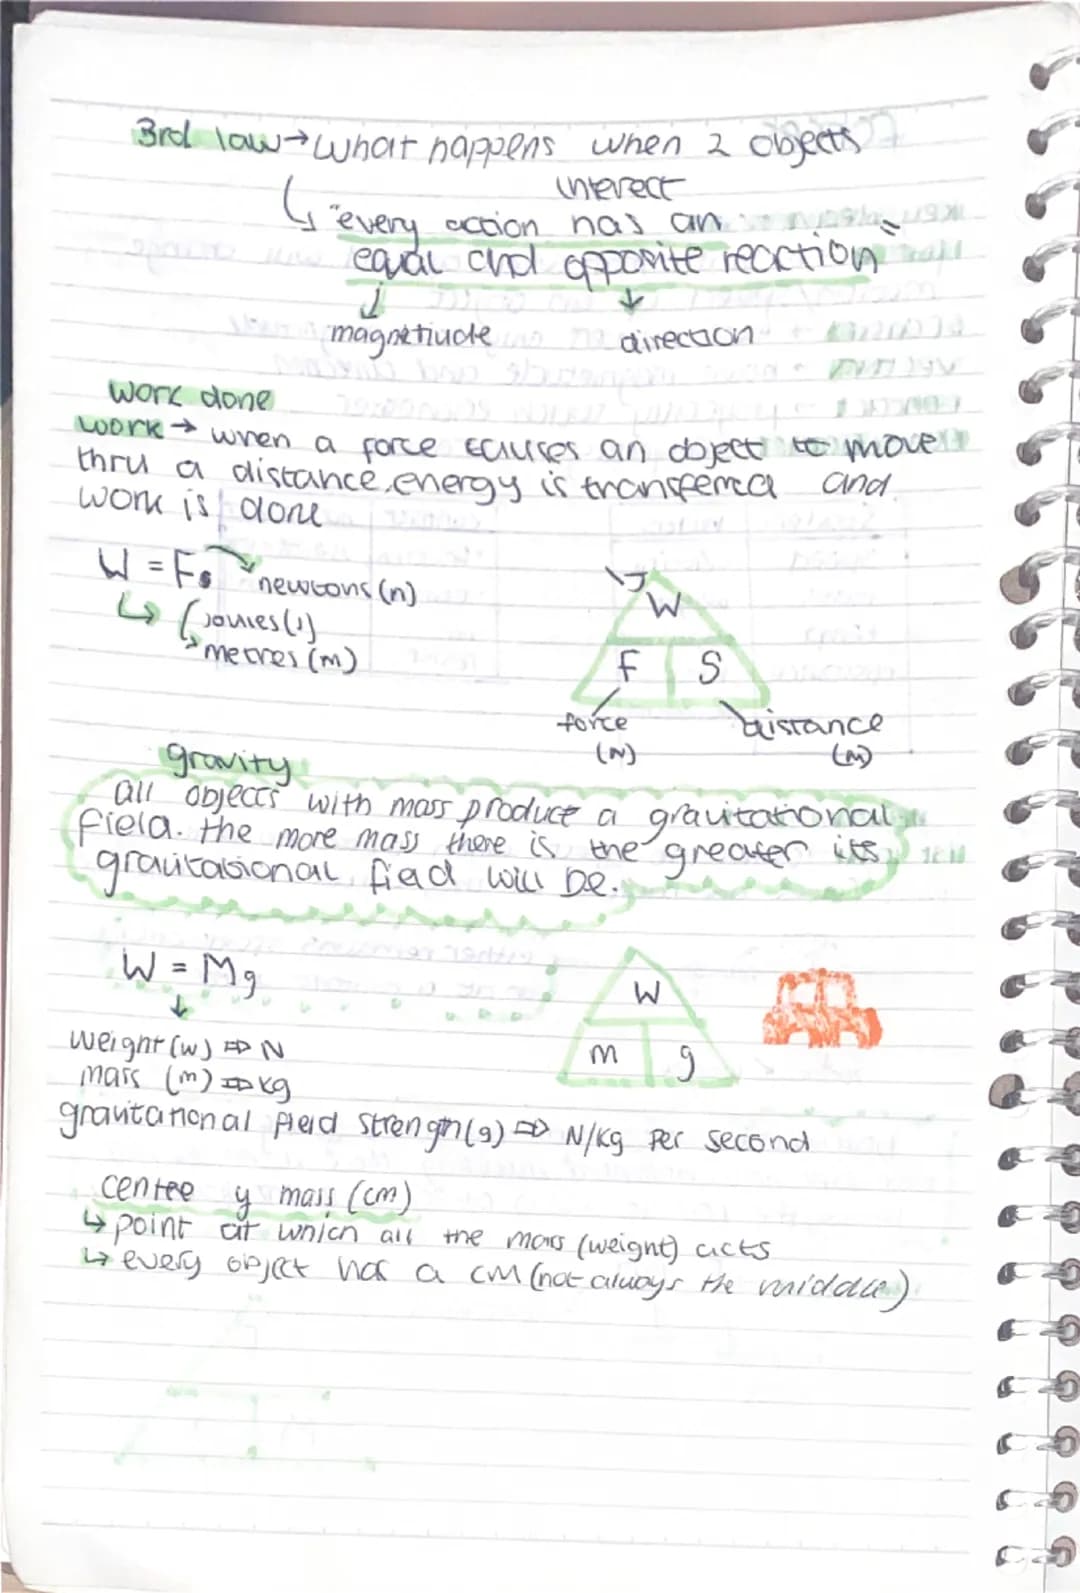 3rd law → what happens when 2 objects
interect
↳ "every action has an
equal and opposite reaction"
↓ ↓
magnetiude direction
work done
work → when a force causes an object to move
thru a distance, energy is transferred and
work is done
W = Fs
newtons (n)
joules (J)
metres (m)
J
W
F S
force distance
(N) (m)
gravity
all objects with mass produce a gravitational
field. the more mass there is the greater its
gravitational field will be.
W = Mg
W
m g
weight (w) ⇒ N
mass (m) ⇒ kg
gravitational field strength (g) ⇒ N/kg per second
centre of mass (cm)
↳ point at which all the mass (weight) acts
↳ every object has a cm (not always the middle)